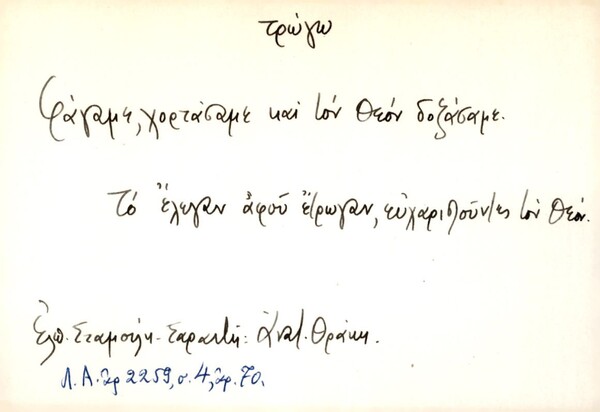 τρώγω
Φάγαμε, χορτάσαμε καὶ τὸν Θεόν δοξάσαμε.
Τό ἔλεγαν ἀφοῦ ἔτρωγαν, εὐχαριστοῦντες τὸν Θεόν.
Ἐλπ. Σταμούλη - Σαραντῆ: Ἀνατ. Θράκη.
Λ. Α. ἀρ 2259, σ. 4, ἀρ. 70.